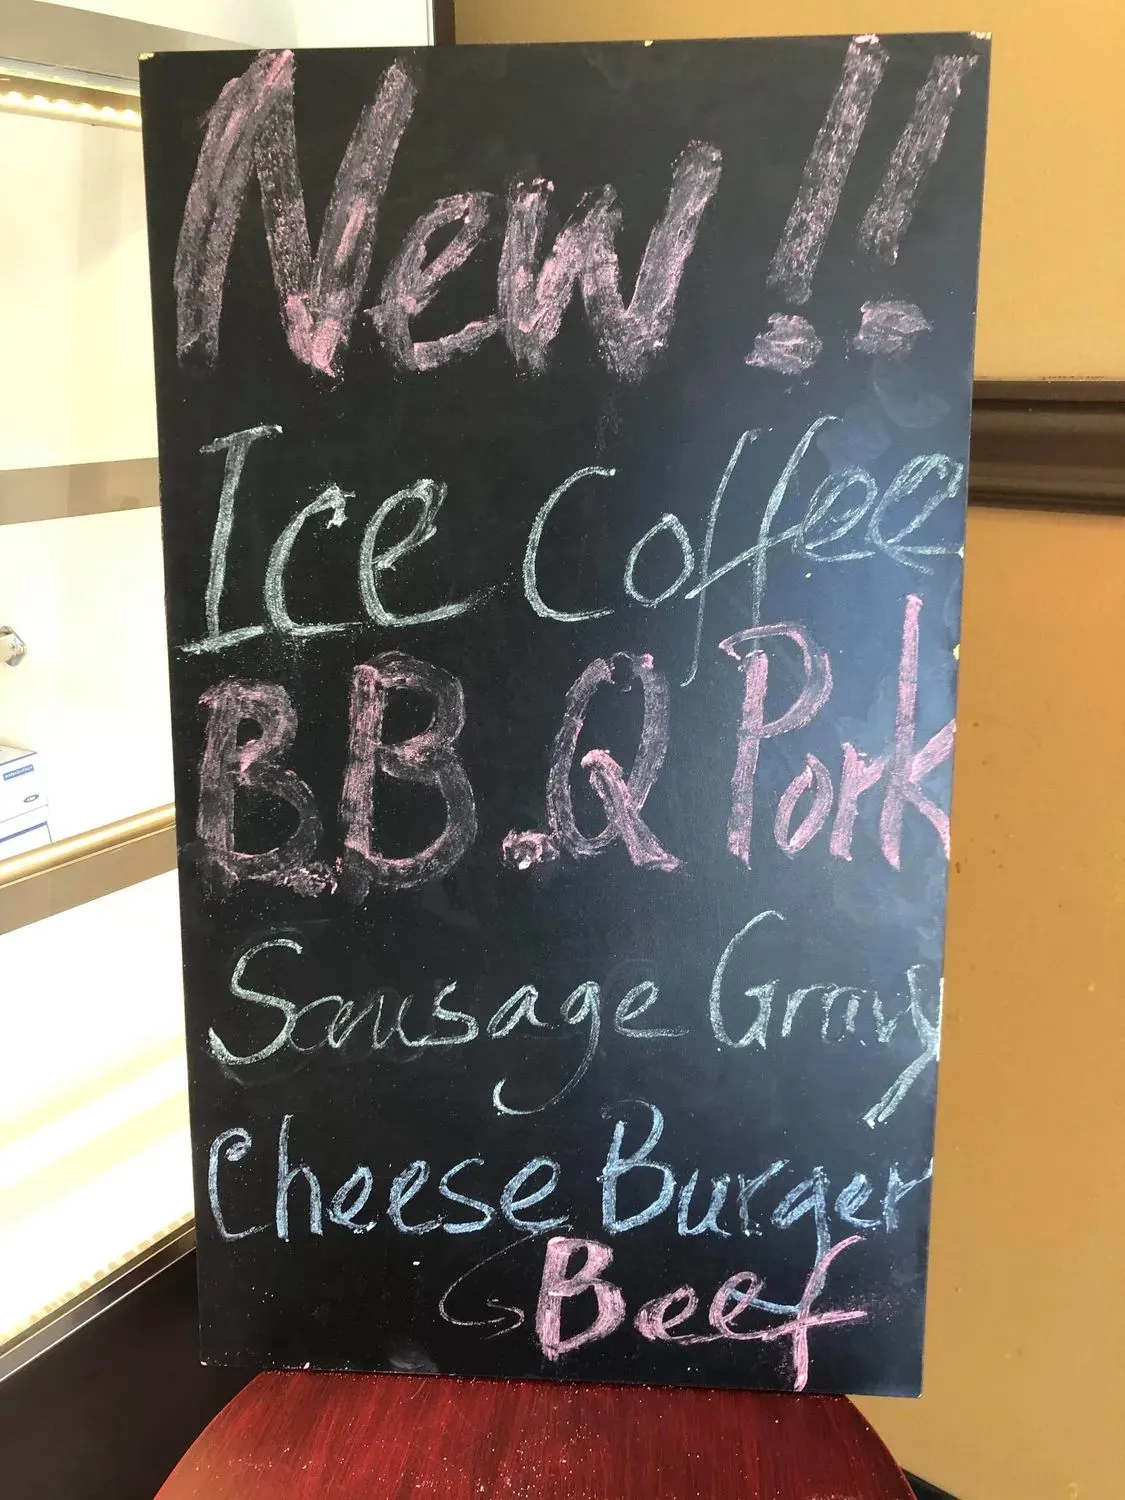 New!!
Ice Coffee
B.B.Q Pork
Sausage Gravy
Cheese Burger
Beef